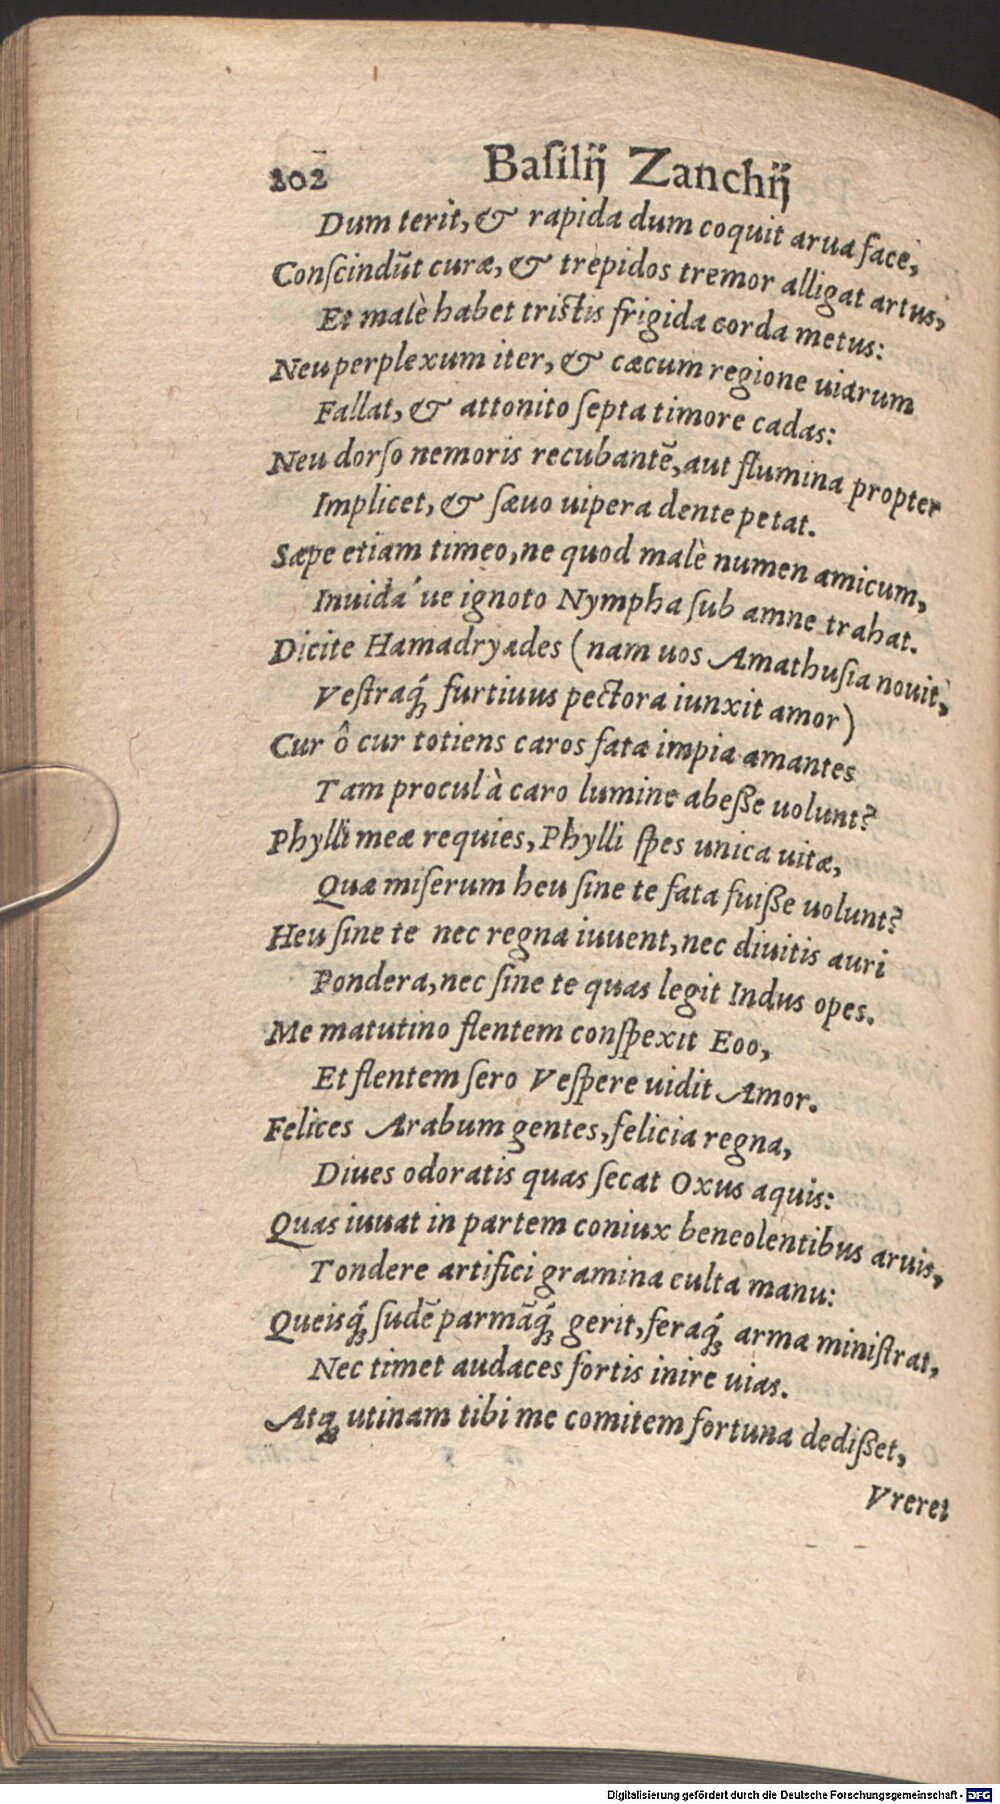 202 Baſilij Zanchij
Dum terit, & rapida dum coquit arua face,
Conſcindūt curæ, & trepidos tremor alligat artus,
Et malè habet triſtis frigida corda metus:
Neu perplexum iter, & cæcum regione uiarum
Fallat, & attonito ſepta timore cadas:
Neu dorſo nemoris recubantē, aut flumina propter
Implicet, & ſæuo uipera dente petat.
Sæpe etiam timeo, ne quod malè numen amicum,
Inuidá ue ignoto Nympha ſub amne trahat.
Dicite Hamadryades (nam uos Amathuſia nouit,
Veſtraq́; furtiuus pectora iunxit amor)
Cur ô cur totiens caros fata impia amantes
Tam procul à caro lumine abeſſe uolunt?
Phylli meæ requies, Phylli ſpes unica uitæ,
Quæ miſerum heu ſine te fata fuiſſe uolunt?
Heu ſine te nec regna iuuent, nec diuitis auri
Pondera, nec ſine te quas legit Indus opes.
Me matutino flentem conſpexit Eoo,
Et flentem ſero Veſpere uidit Amor.
Felices Arabum gentes, felicia regna,
Diues odoratis quas ſecat Oxus aquis:
Quas iuuat in partem coniux beneolentibus aruis,
Tondere artifici gramina culta manu:
Queisq́; ſudē parmāq́; gerit, feraq́; arma miniſtrat,
Nec timet audaces fortis inire uias.
Atq; utinam tibi me comitem fortuna dediſſet,
Vreret
Digitalisierung gefördert durch die Deutsche Forschungsgemeinschaft - DFG